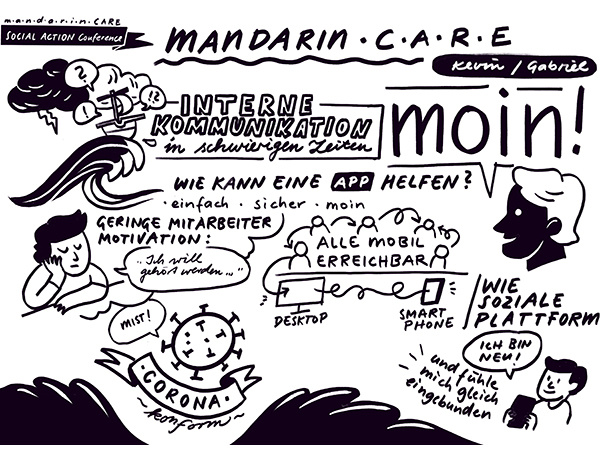 m·a·n·d·a·r·i·n·CARE
SOCIAL ACTION Conference
MANDARIN · C · A · R · E
Kevin / Gabriel
INTERNE
KOMMUNIKATION
in schwierigen Zeiten
moin!
WIE KANN EINE APP HELFEN?
· einfach · sicher · moin
GERINGE MITARBEITER
MOTIVATION:
"Ich will
gehört werden..."
ALLE MOBIL
ERREICHBAR
DESKTOP
SMART
PHONE
WIE
SOZIALE
PLATTFORM
MIST!
· CORONA ·
konform
ICH BIN
NEU!
und fühle
mich gleich
eingebunden